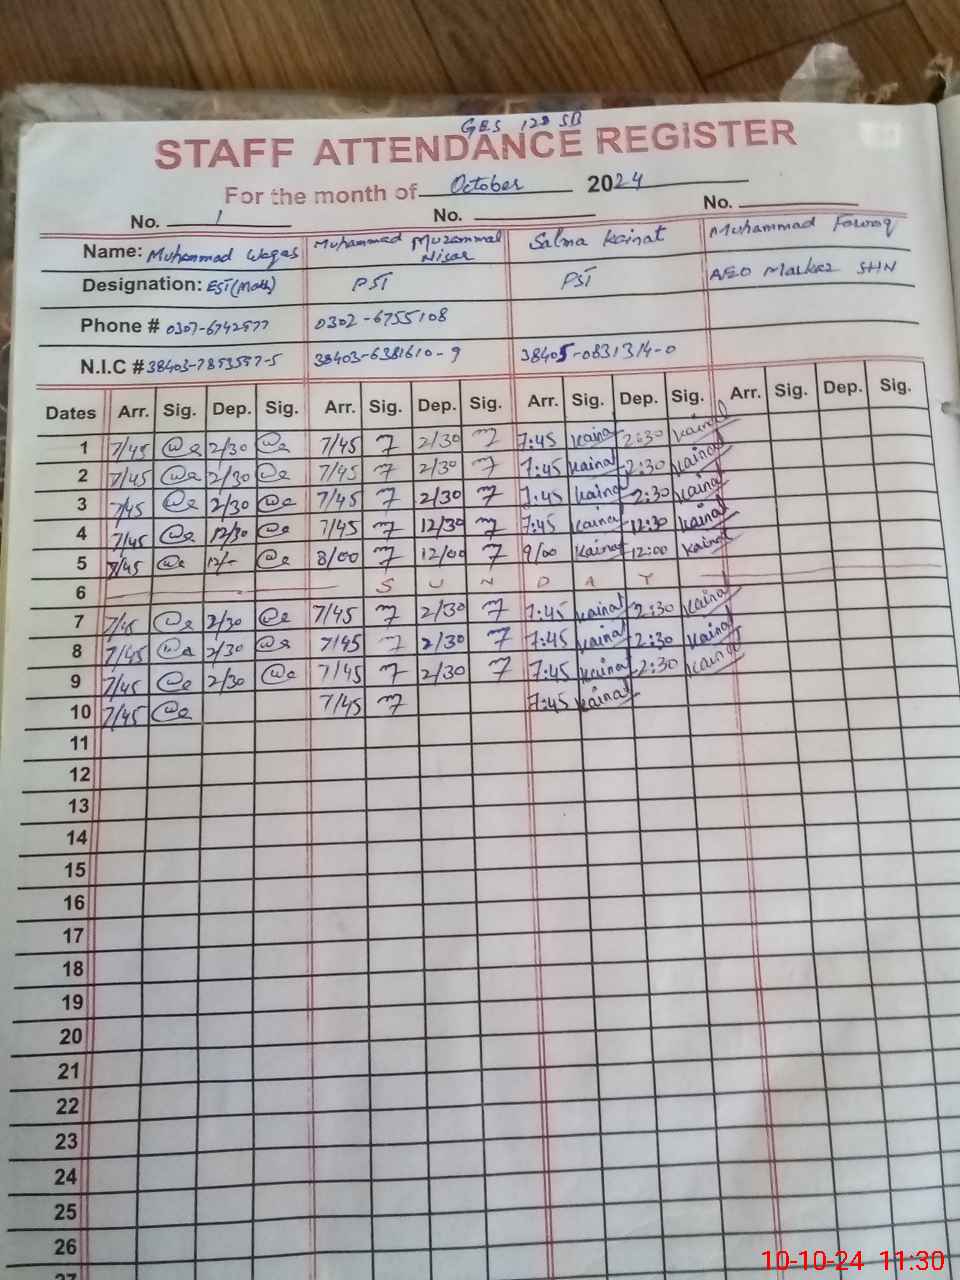 GES 128 SB
STAFF ATTENDANCE REGISTER
For the month of October 2024
No. 1 No. No.
Name: Muhammad Waqas Muhammad Muzammal Nisar Salma Kainat Muhammad Farooq
Designation: EST(Math) PST PST AEO Markaz SHN
Phone # 0307-6742577 0302-6755108
N.I.C # 38403-7853557-5 38403-6381610-9 38405-0831314-0
Dates Arr. Sig. Dep. Sig. Arr. Sig. Dep. Sig. Arr. Sig. Dep. Sig. Arr. Sig. Dep. Sig.
1 7/45 2/30 7/45 2/30 7:45 Kainat 2:30 Kainat
2 7/45 2/30 7/45 2/30 7:45 Kainat 2:30 Kainat
3 7/45 2/30 7/45 2/30 7:45 Kainat 2:30 Kainat
4 7/45 12/30 7/45 12/30 7:45 Kainat 12:30 Kainat
5 7/45 12/- 8/00 12/00 9/00 Kainat 12:00 Kainat
6 S U N D A Y
7 7/45 2/30 7/45 2/30 7:45 Kainat 2:30 Kainat
8 7/45 2/30 7/45 2/30 7:45 Kainat 2:30 Kainat
9 7/45 2/30 7/45 2/30 7:45 Kainat 2:30 Kainat
10 7/45 7/45 7:45 Kainat
11
12
13
14
15
16
17
18
19
20
21
22
23
24
25
26
27
10-10-24 11:30